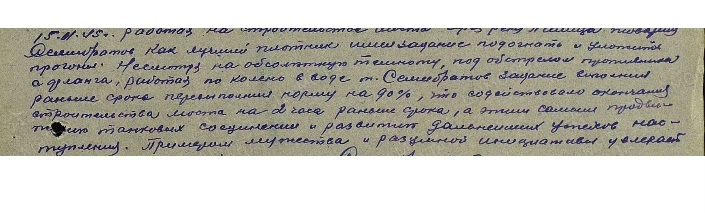 15.II.45г. работая на строительстве моста через реку Пилица товарищ
Семибратов как лучший плотник имел задание подогнать и уложить
прогоны. Несмотря на абсолютную темноту, под обстрелом противника
с фланга, работая по колено в воде т. Семибратов задание выполнил
раньше срока перевыполнив норму на 90%, что содействовало окончанию
строительства моста на 2 часа раньше срока, а этим самым продви-
жению танковых соединений и развитию дальнейших успехов нас-
тупления. Примером мужества и разумной инициативы увлекает